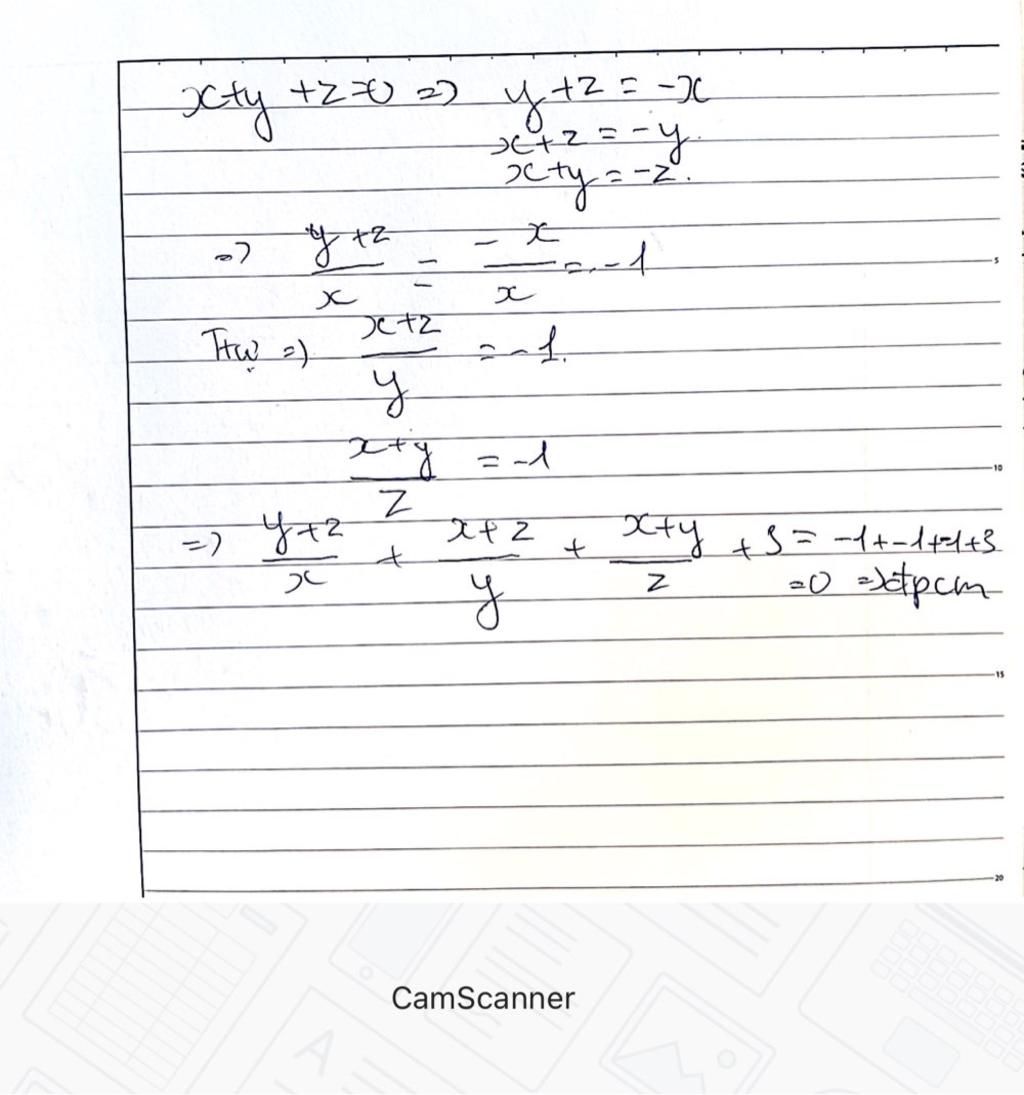 x+y+z=0 => y+z = -x
x+z = -y.
x+y = -z.
=> (y+z)/x = -x/x = -1
Ttự => (x+z)/y = -1.
5
(x+y)/z = -1
10
=> (y+z)/x + (x+z)/y + (x+y)/z + 3 = -1+-1+-1+3
=0 => đpcm
15
20
CamScanner